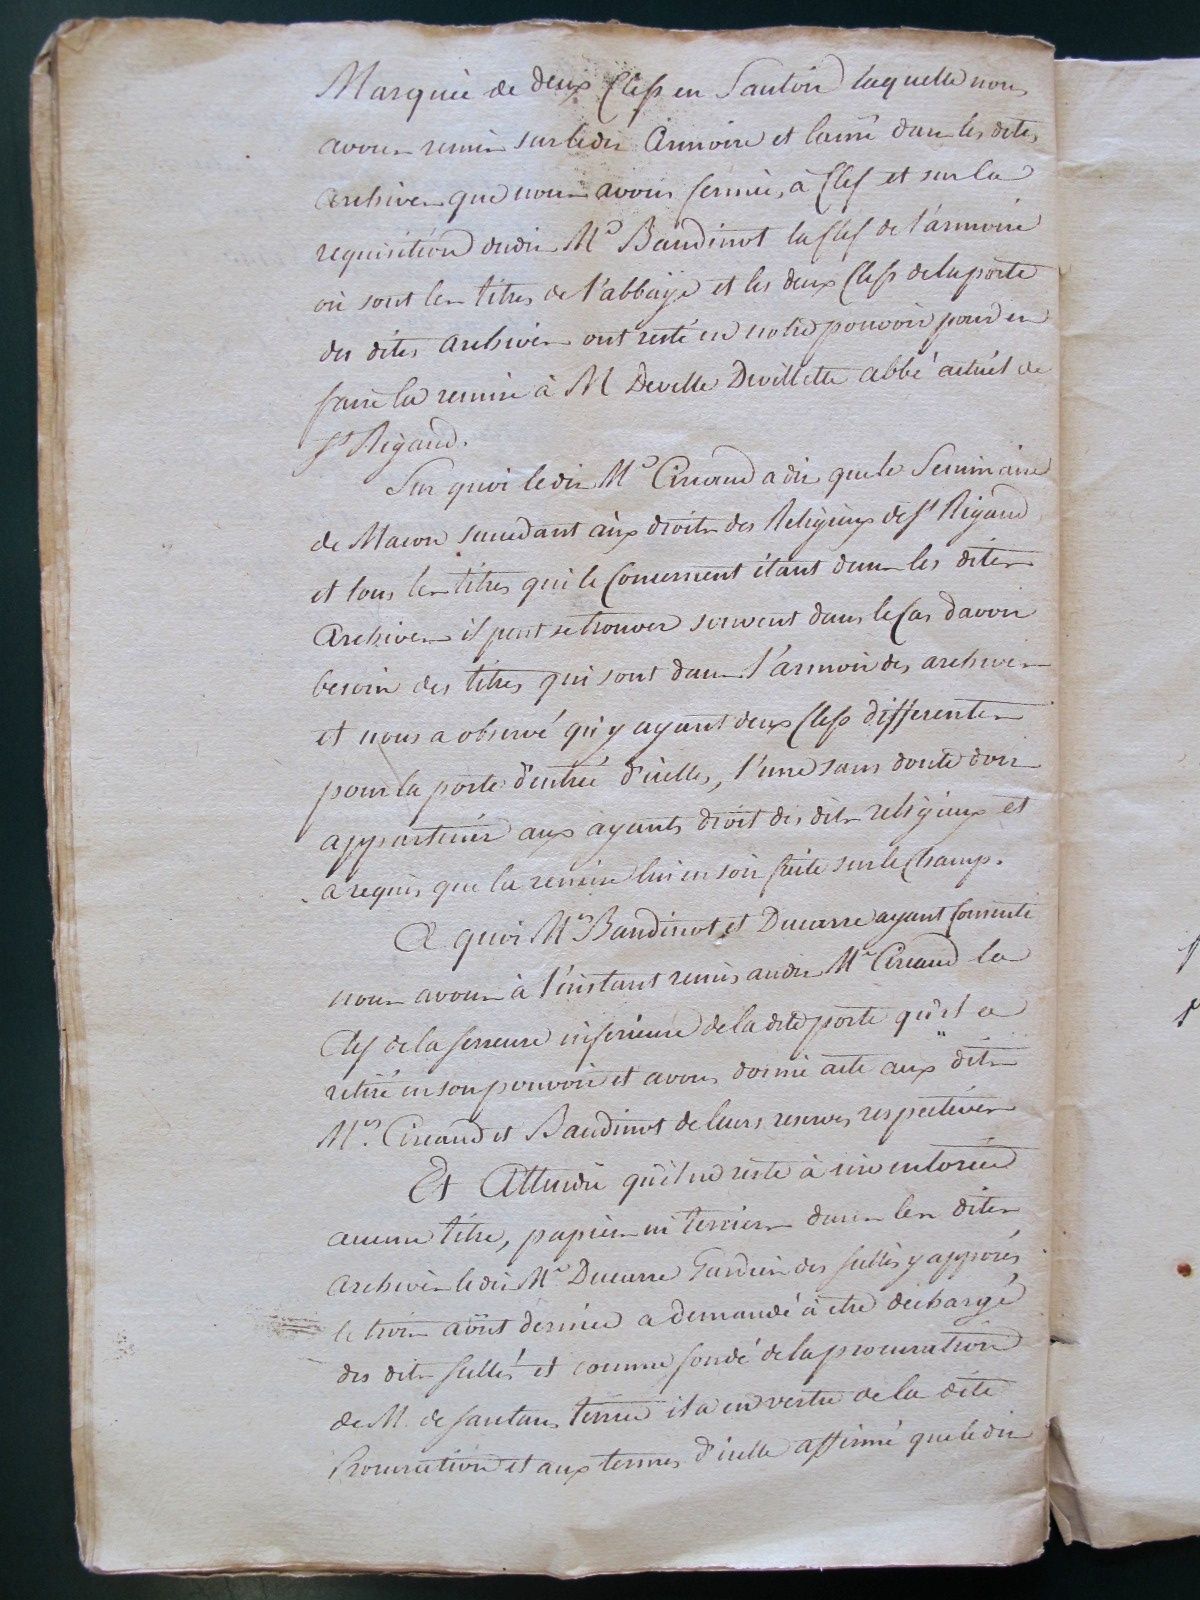 Marquée de deux Clefs en Sautoir laquelle nous
avons remis sur ledit Armoire et laissé dans les dites
archives que nous avons fermée, à Clef et sur la
requisition dudit Me Baudinot la clef de l'armoire
où sont les titres de l'abbaye et les deux Clefs de la porte
des dites archives ont resté en notre pouvoir pour en
faire la remise à M Deville Devillette abbé actuel de
St Rigaud.
Sur quoi ledit Me Circaud a dit que le Seminaire
de Macon succedant aux droits des Religieux de St Rigaud
et tous les titres qui le Concernent étant dans les dites
Archives il peut se trouver souvent dans le Cas d'avoir
besoin des titres qui sont dans l'armoire des archives
et nous a observé qu'y ayant deux Clefs differentes
pour la porte d'entrée d'icelles, l'une sans doute doit
appartenir aux ayants droit des dits religieux et
a requis que la remise lui en soit faite sur le Champ.
A quoi Mrs Baudinot et Ducarre ayant Consenti
nous avons à l'instant remis audit Me Circaud la
Clef de la serrure inferieure de la dite porte qu'il a
retiré en son pouvoir et avons donné acte aux dits
Mrs. Circaud et Baudinot de leurs reserves respectives
Et Attendu qu'il ne reste à inventorier
aucun titre, papiers ni terriers dans les dites
archives ledit Me Ducarre Gardien des scellés y apposés
le trois août dernier a demandé à etre dechargé
des dits scellés et comme fondé de la procuration
de M. de il a en vertu de la dite
Procuration et aux termes d'icelle affirmé que ledit